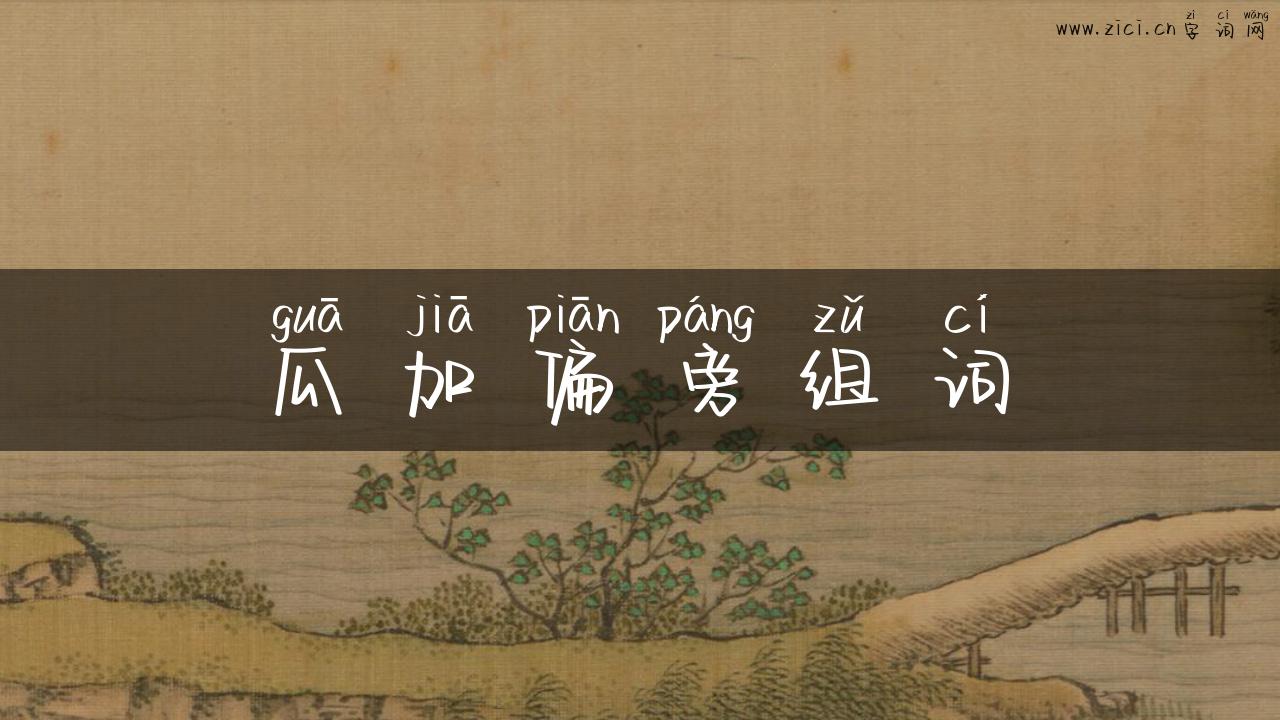 zì cí wǎng
www.zici.cn 字 词 网
guā jiā piān páng zǔ cí
瓜 加 偏 旁 组 词